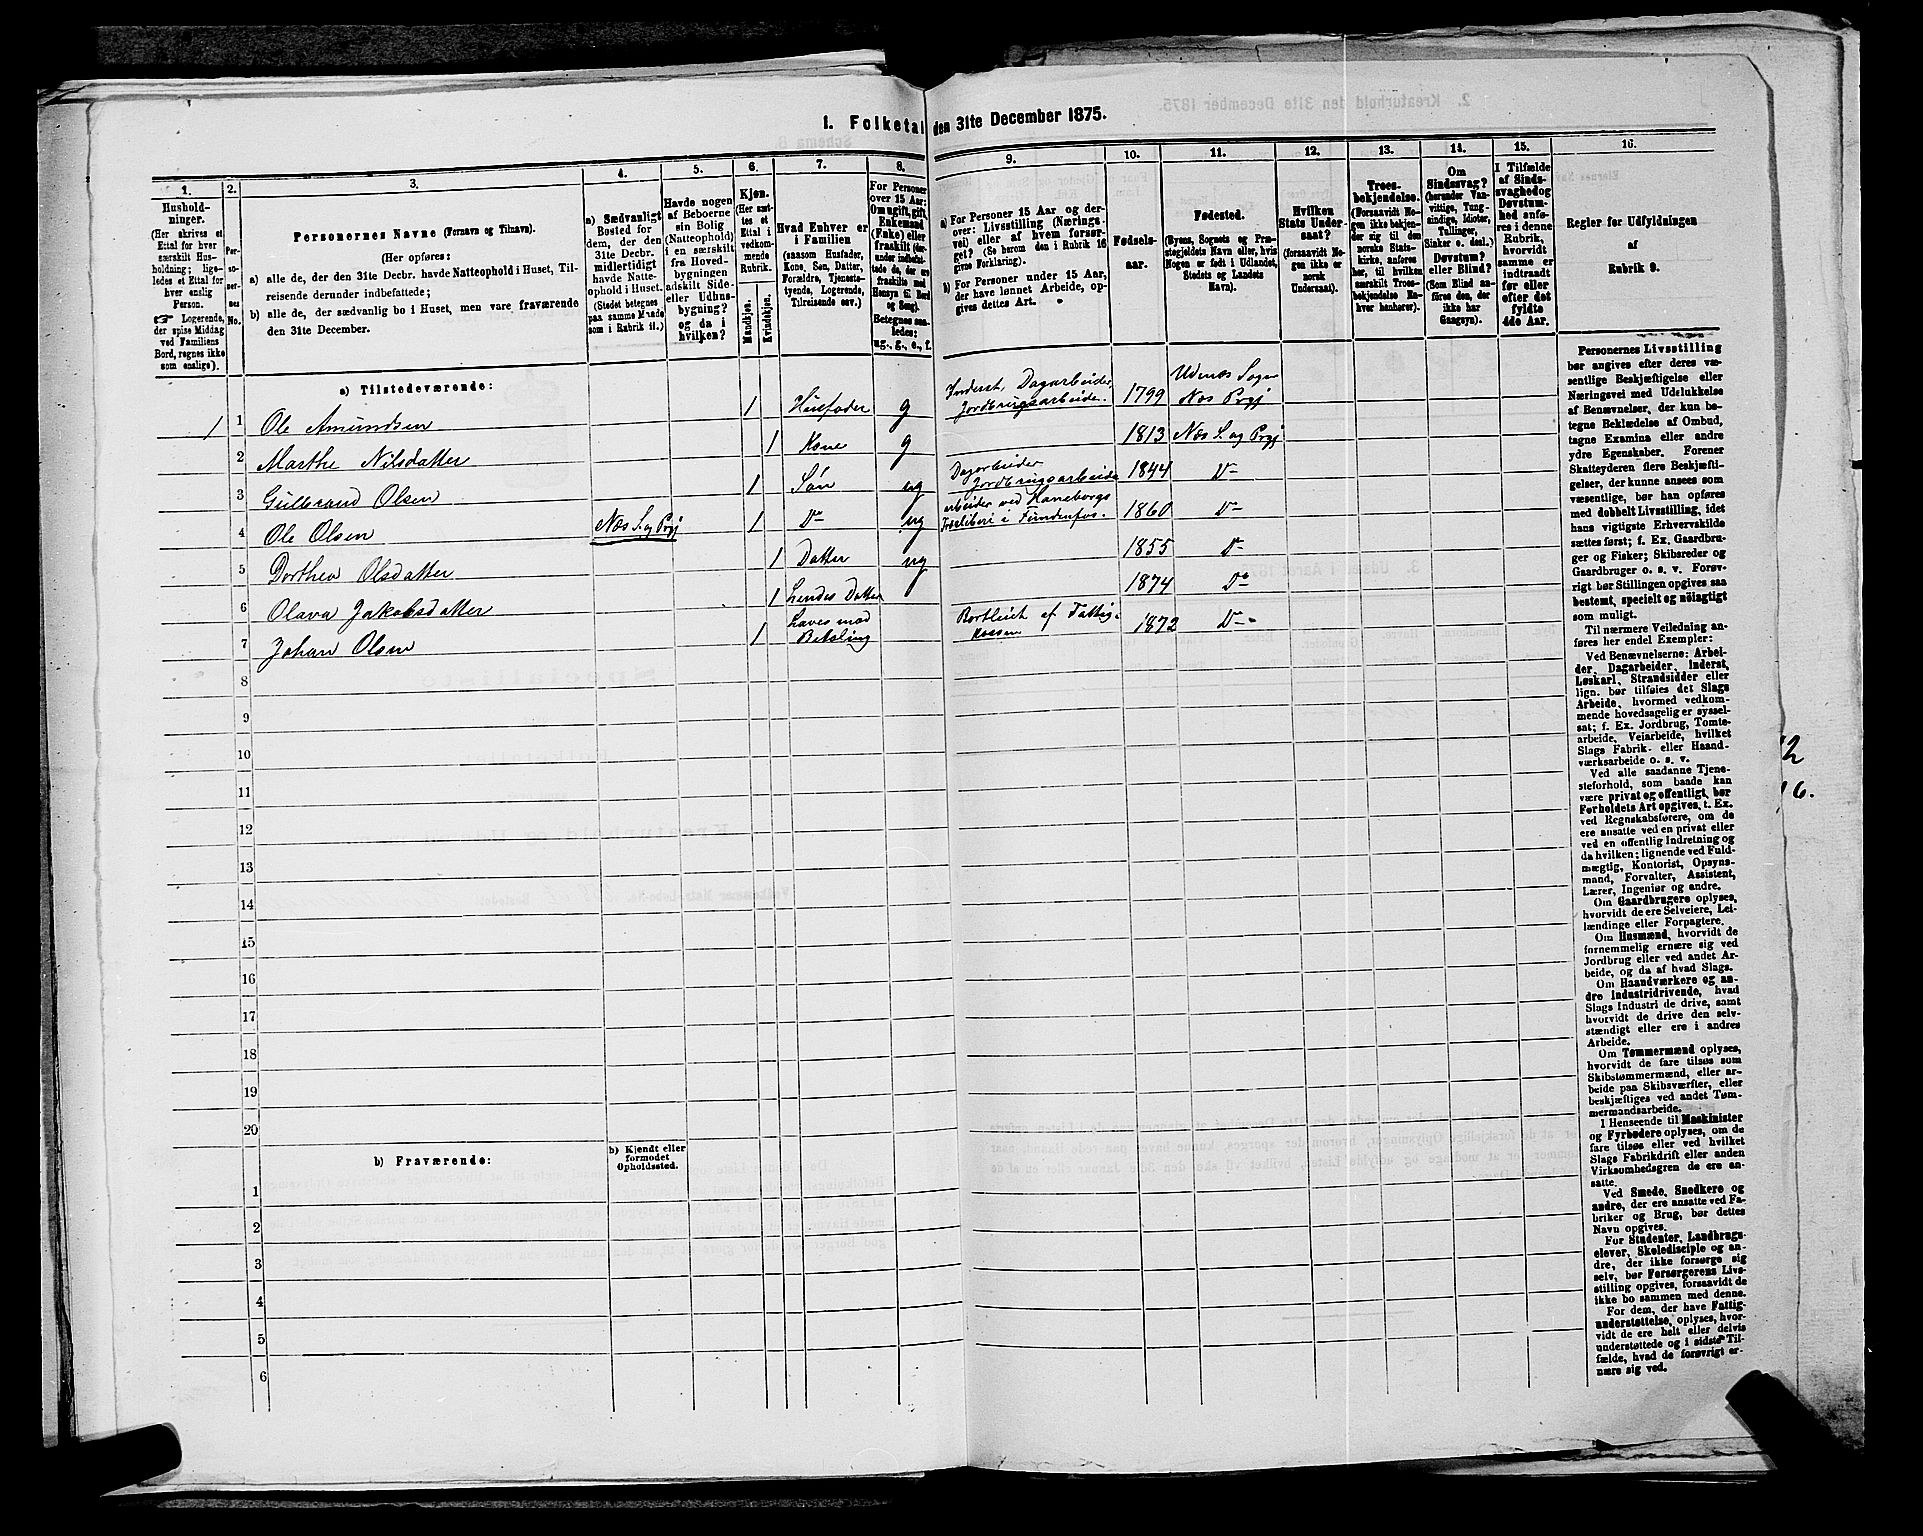 1. Folketal den 31te December 1875.
1. 2. 3. 4. 5. 6. 7. 8. 9. 10. 11. 12. 13. 14. 15. 16.
Hushold-
ninger.
(Her skrives et
Ettal for hver
særskilt Hus-
holdning; lige-
ledes et Ettal for
hver enslig
Person.
☞ Logerende,
der spise Middag
ved Familiens
Bord, regnes ikke
som enslige).
Per-
so-
ner-
nes
No.
Personernes Navne (Fornavn og Tilnavn).
(Her opføres:
a) alle de, der den 31te Decbr. havde Natteophold i Huset, Til-
reisende derunder indbefattede;
b) alle de, der sædvanlig bo i Huset, men vare fraværende
den 31te December.
a) Sædvanligt
Bosted for
dem, der den
31te Decbr.
midlertidigt
havde Natte-
ophold i Huset.
(Stedet betegnes
paa samme Maade
som i Rubrik 11.)
Havde nogen
af Beboerne
sin Bolig
(Natteophold)
i en særskilt
fra Hoved-
bygningen
adskilt Side-
eller Udhus-
bygning?
og da i
hvilken?
Kjøn.
(Her sæt-
tes et
Ettal i
vedkom-
mende
Rubrik.
Mandkjøn.
Kvindekjøn.
Hvad Enhver er
i Familien
(saasom Husfader,
Kone, Søn, Datter,
Forældre, Tjeneste-
tyende, Logerende,
Tilreisende osv.)
For Personer
over 15 Aar:
Om ugift, gift,
Enkemand
(Enke) eller
fraskilt (der-
under indbefat-
tede de, der ere
fraskilte med
Hensyn til Bord
og Seng).
Betegnes saa-
ledes:
ug., g., e., f.
a) For Personer 15 Aar og der-
over: Livsstilling (Nærings-
vei) eller af hvem forsør-
get? (Se herom den i Rubrik 16
givne Forklaring).
b) For Personer under 15 Aar,
der have lønnet Arbeide, op-
gives dettes Art.
Fødsels-
aar.
Fødested.
(Byens, Sognets og Præ-
stegjeldets Navn eller, hvis
Nogen er født i Udlandet,
Stedets og Landets
Navn).
Hvilken
Stats Under-
saat?
(forsaavidt No-
gen ikke er
norsk
Undersaat).
Troes-
bekjendelse.
(Forsaavidt No-
gen ikke bekjen-
der sig til den
norske Stats-
kirke, anføres
her, til hvilken
særskilt Troes-
bekjendelse En-
hver henhører).
Om
Sindssvag?
(herunder Van-
vittige, Tung-
sindige, Idioter,
Tullinger,
Sinker o. desl.)
Døvstum?
eller Blind?
(Som Blind an-
føres den, der
ikke har
Gangsyn).
I Tilfælde
af Sinds-
svaghed og
Døvstum-
hed anfø-
res i denne
Rubrik,
hvorvidt
samme er
indtraadt
før eller
efter det
fyldte
4de Aar.
Regler for Udfyldningen
af
Rubrik 9.
a) Tilstedeværende:
1 1 Ole Amundsen 1 Husfader g Inderst, Dagarbeider, Jordbrugsarbeide. 1799 Udenæs Sogn Næs Prgj
2 Marthe Nilsdatter 1 Kone g 1813 Næs S. og Prgj
3 Gulbrand Olsen 1 Søn ug Dagarbeider Jordbrugsarbeide 1844 D-
4 Ole Olsen Næs S. og Prgj 1 D- ug arbeider ved Haneborgs Træsliberi i Fundenfos. 1860 D-
5 Dorthea Olsdatter 1 Datter ug 1855 D-
6 Olava Jakobsdatter 1 Hendes Datter 1874 Do
7 Johan Olsen 1 Haves mod Betaling Bortleiet af Fattigkassen 1872 D-
8
9
10
11
12
13
14
15
16
17
18
19
20
b) Fraværende:
b) Kjendt eller
formodet
Opholdssted.
1
2
3
4
5
6
Personernes Livsstilling
bør angives efter deres væ-
sentlige Beskjæftigelse eller
Næringsvei med Udelukkelse
af Benævnelser, der kun be-
tegne Beklædelse af Ombud,
tagne Examina eller andre
ydre Egenskaber. Forener
Skatteyderen flere Beskjæfti-
gelser, der kunne ansees som
væsentlige, bør han opføres
med dobbelt Livsstilling, idet
hans vigtigste Erhvervskilde
sættes først; f. Ex. Gaardbru-
ger og Fisker; Skibsreder og
Gaardbruger o. s. v. Forøv-
rigt bør Stillingen opgives saa
bestemt, specielt og nøiagtigt
som muligt.
Til nærmere Veiledning an-
føres her endel Exempler:
Ved Benævnelserne: Arbei-
der, Dagarbeider, Inderst,
Løskarl, Strandsidder eller
lign. bør tilføies det Slags
Arbeide, hvormed vedkom-
mende hovedsagelig er syssel-
sat; f. Ex. Jordbrug, Tomte-
arbeide, Veiarbeide, hvilket
Slags Fabrik- eller Haand-
værksarbeide o. s. v.
Ved alle saadanne Tjene-
steforhold, som baade kan
være privat og offentligt, bør
Forholdets Art opgives, t. Ex.
ved Regnskabsførere, om de
ere ansatte ved en privat eller
ved en offentlig Indretning og
da hvilken; lignende ved Fuld-
mægtig, Kontorist, Opsyns-
mand, Forvalter, Assistent,
Lærer, Ingeniør og andre.
Om Gaardbrugere oplyses,
hvorvidt de ere Selveiere, Lei-
lændinge eller Forpagtere.
Om Husmænd, hvorvidt de
fornemmelig ernære sig ved
Jordbrug eller ved andet Ar-
beide, og da af hvad Slags.
Om Haandværkere og an-
dre Industridrivende, hvad
Slags Industri de drive, samt
hvorvidt de drive den selv-
stændigt eller ere i andres
Arbeide.
Om Tømmermænd oplyses,
hvorvidt de fare tilsøs som
Skibstømmermænd, eller ar-
beide paa Skibsværfter, eller
beskjæftiges ved andet Tøm-
mermandsarbeide.
I Henseende til Maskinister
og Fyrbødere oplyses, om de
fare tilsøs eller ved hvilket
Slags Fabrikdrift eller anden
Virksomhedsgren de ere an-
satte.
Ved Smede, Snedkere og
andre, der ere ansatte ved Fa-
briker og Brug, bør dettes
Navn opgives.
For Studenter, Landbrugs-
elever, Skoledisciple og an-
dre, der ikke forsørge sig
selv, bør Forsørgerens Livs-
stilling opgives, forsaavidt de
ikke bo sammen med denne.
For dem, der have Fattig-
understøttelse, oplyses, hvor-
vidt de ere helt eller delvis
understøttede og i sidste Til-
fælde, hvad de forøvrigt er-
nære sig ved.